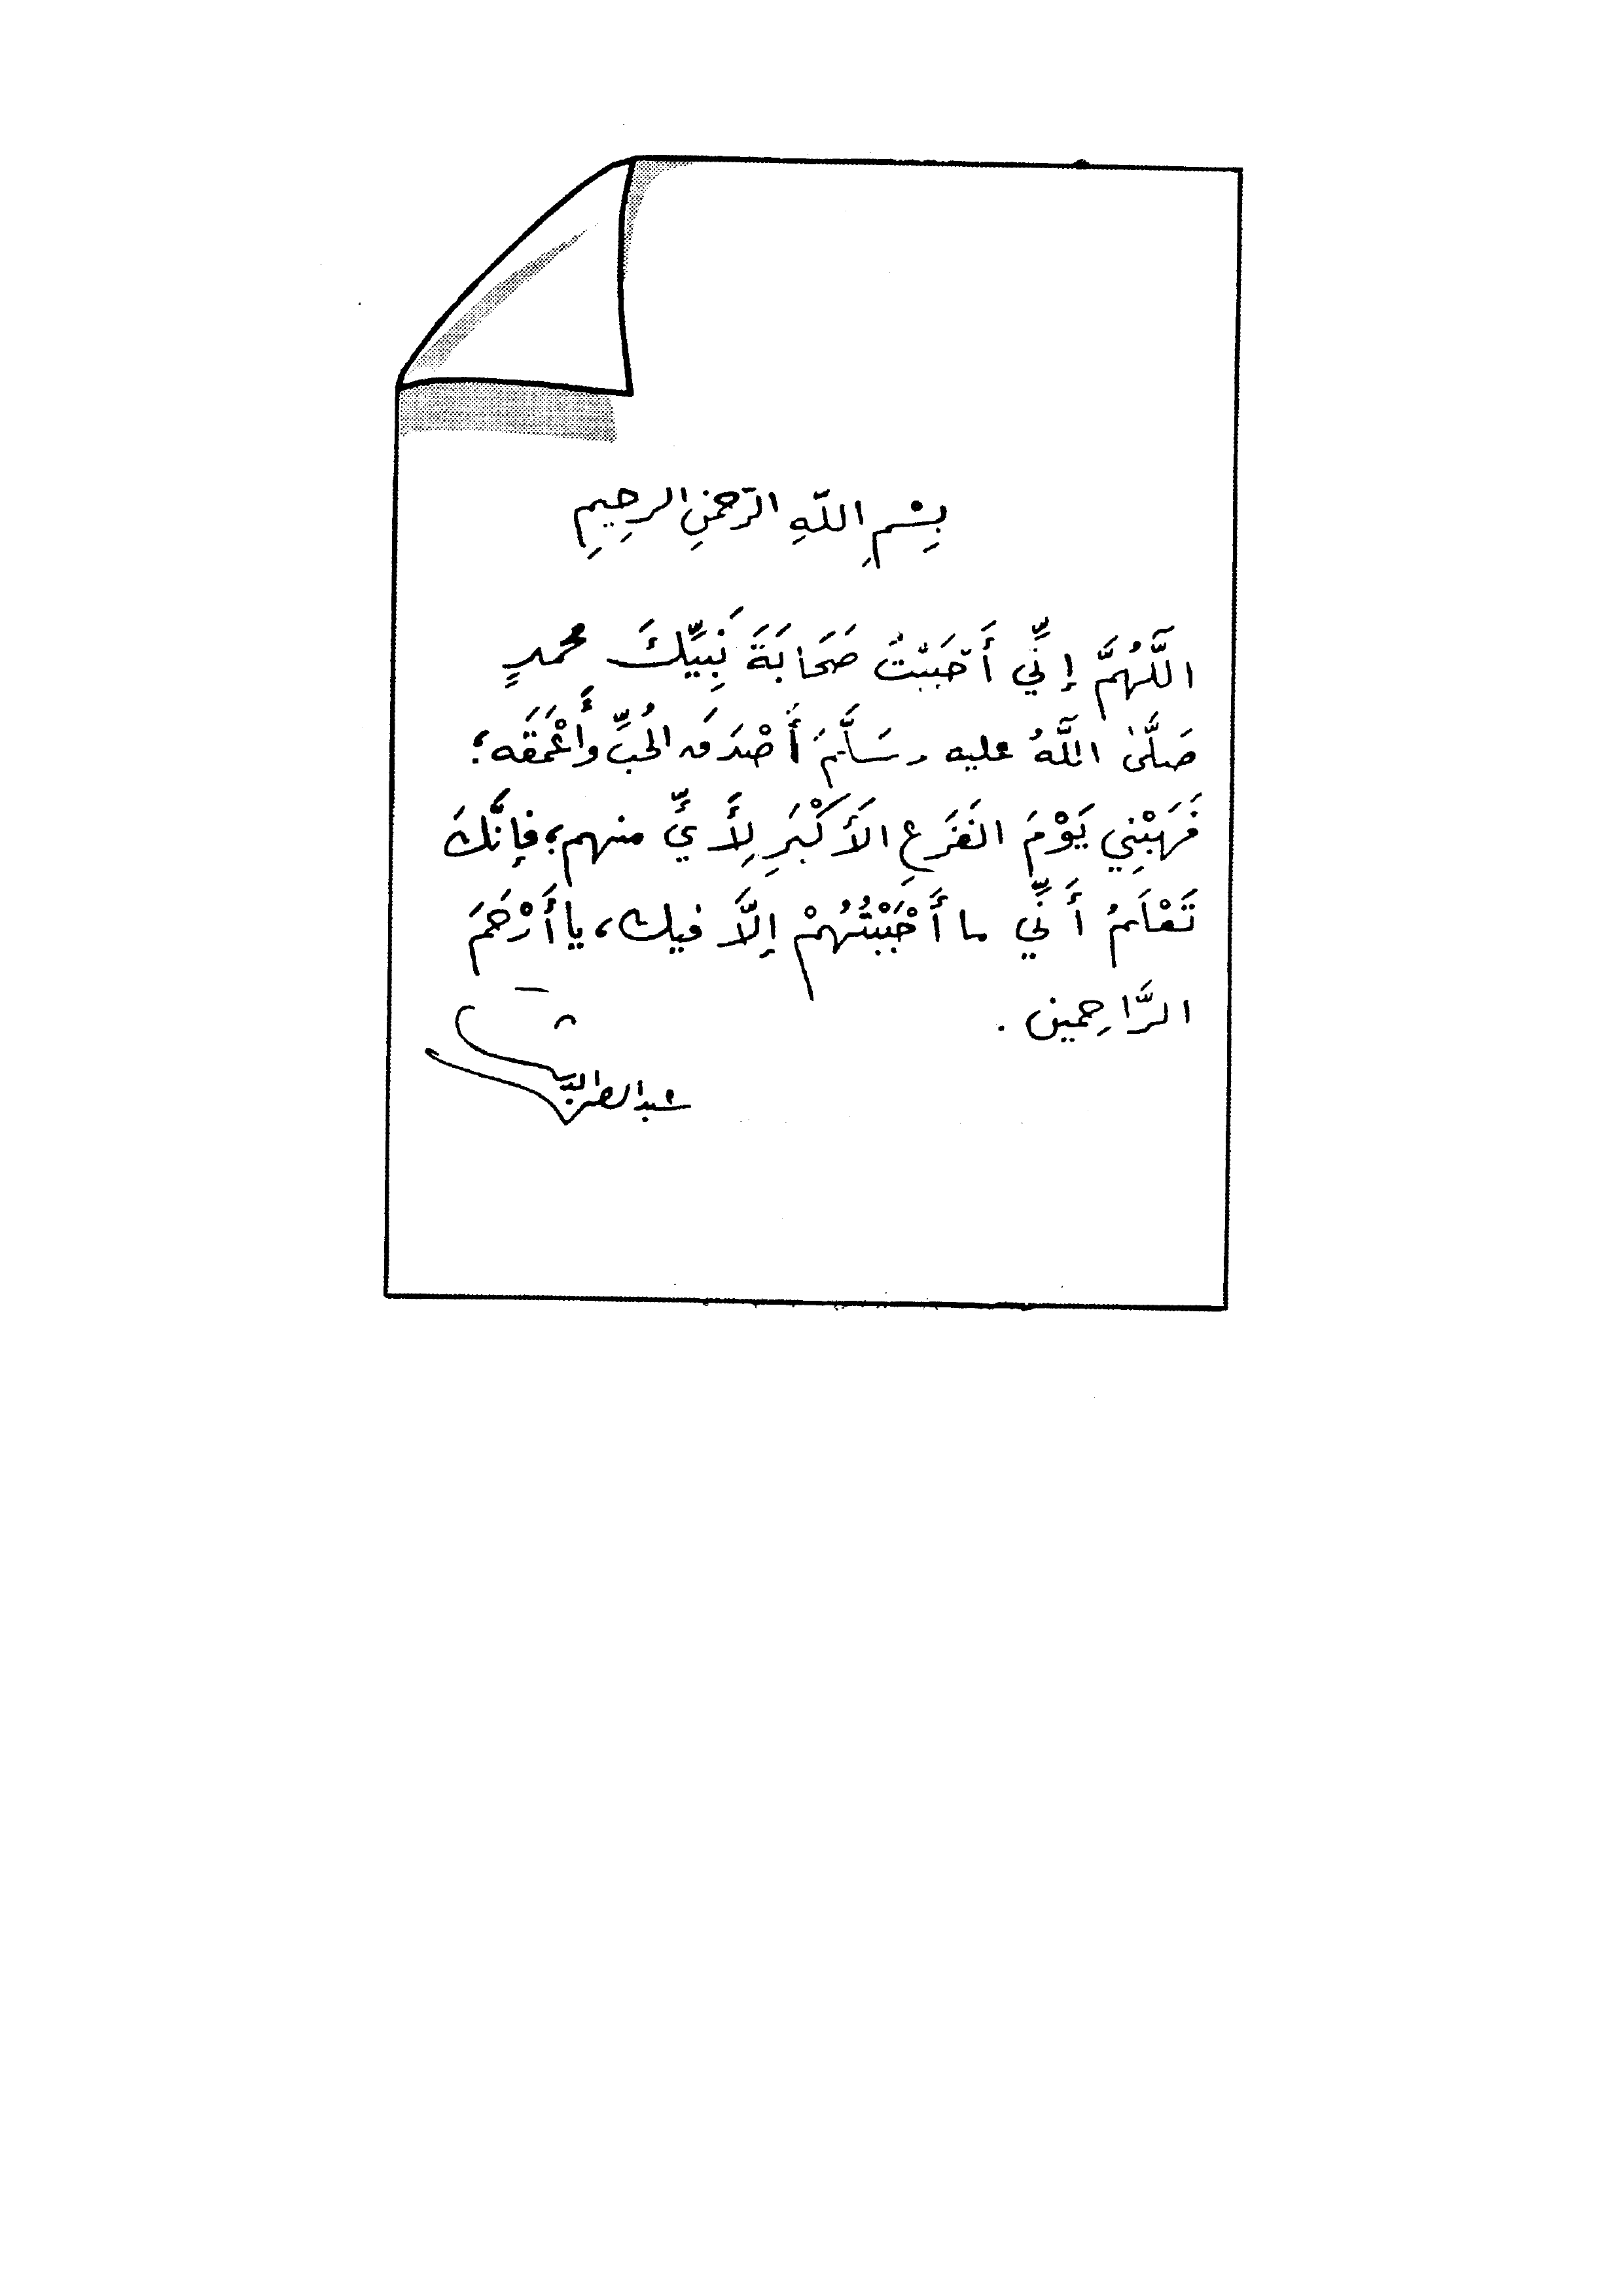 بِسْمِ اللَّهِ الرَّحمٰنِ الرحِيمِ
اللَّهُمَّ إنِّي أَحَبَبْتُ صَحَابَةَ نَبِيِّكَ محمدٍ
صَلَّىٰ اللَّهُ عليه وسَلَّمَ أَصْدَقَ الحُبِّ وأَعْمَقَه؛
فَهَبْنِي يَوْمَ الفَزَعِ الأَكْبَرِ لِأَيٍّ منهم؛ فإنَّكَ
تَعْلَمُ أَنِّي ما أَحْبَبْتُهُمْ إلَّا فيك، يا أَرْحَمَ
الرَّاحِمين.